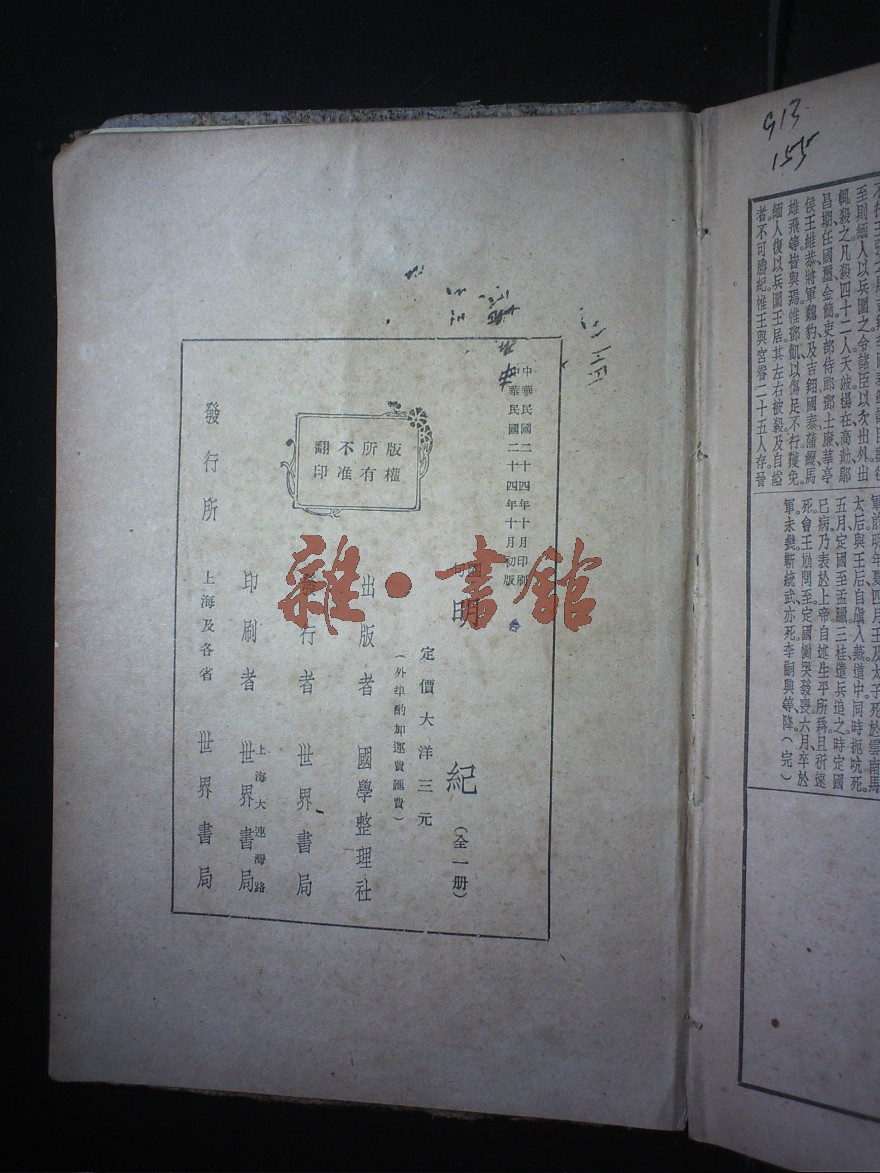 913
155
至則緬人以兵圍之令諸臣以次出外出
輒殺之凡殺四十二人天波揚在高勳鄔
昌期、任國璽、金簡吏部侍郎鄧士廉華亭
侯王維恭將軍魏豹及吉翔國泰蒲纓馬
雄飛等皆與焉惟鄧凱以傷足不行獲免
緬人復以兵圍王居其左右被殺及自縊
者不可勝紀惟王與宮眷二十五人存晉
軍前明年夏四月王及太子死於雲南馬
太后與王后自傎入燕道中同時扼吭死。
五月定國至孟臘三桂遣兵追之時定國
已病乃表於上帝自述生平所為且祈速
死會王訃聞至定國慟哭發喪六月卒於
軍未幾靳統武亦死李嗣興等降(完)
中華民國二十四年十月印刷
中華民國二十四年十月初版
明紀(全一册)
定價大洋三元
(外埠酌加運費匯費)
版權所有不准翻印
出版者 國學整理社
發行者 世界書局
上海大連灣路
印刷者 世界書局
發行所 上海及各省 世界書局
雜·書館